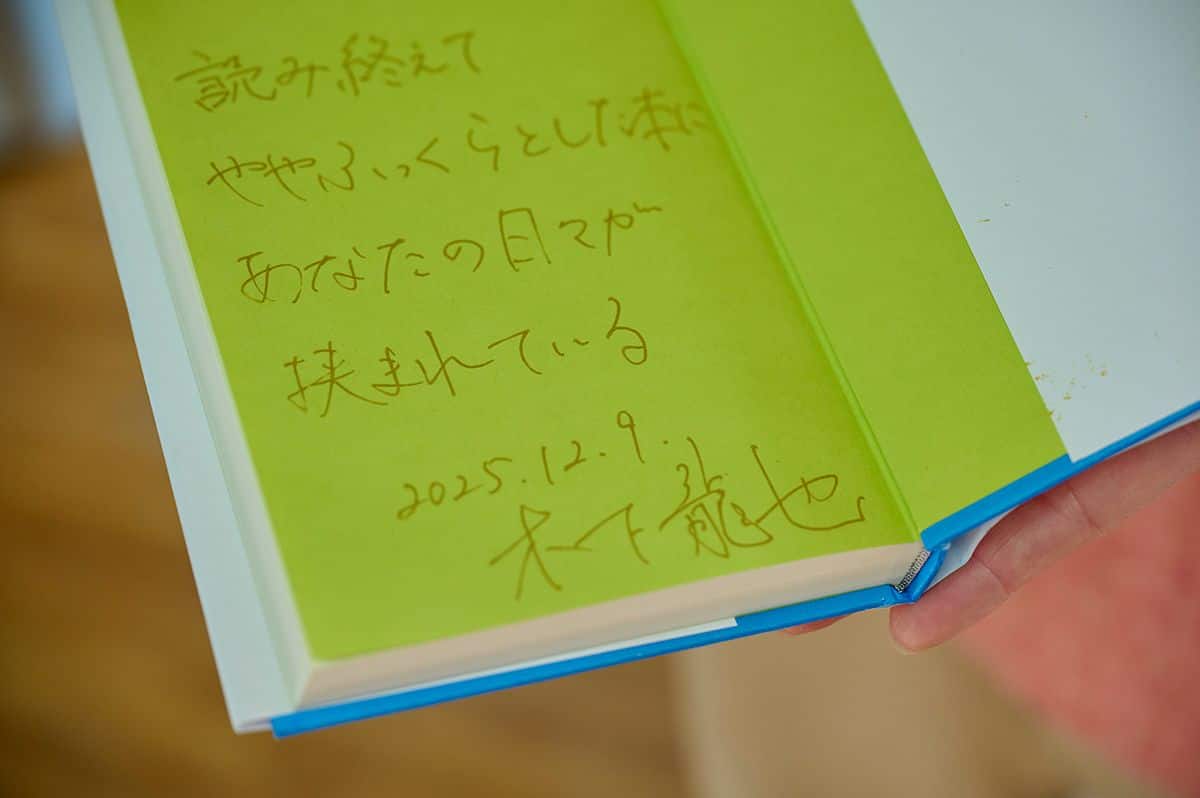 読み終えて
ややふっくらとした本に
あなたの目々が
挟まれている
2025.12.9.
木下龍也